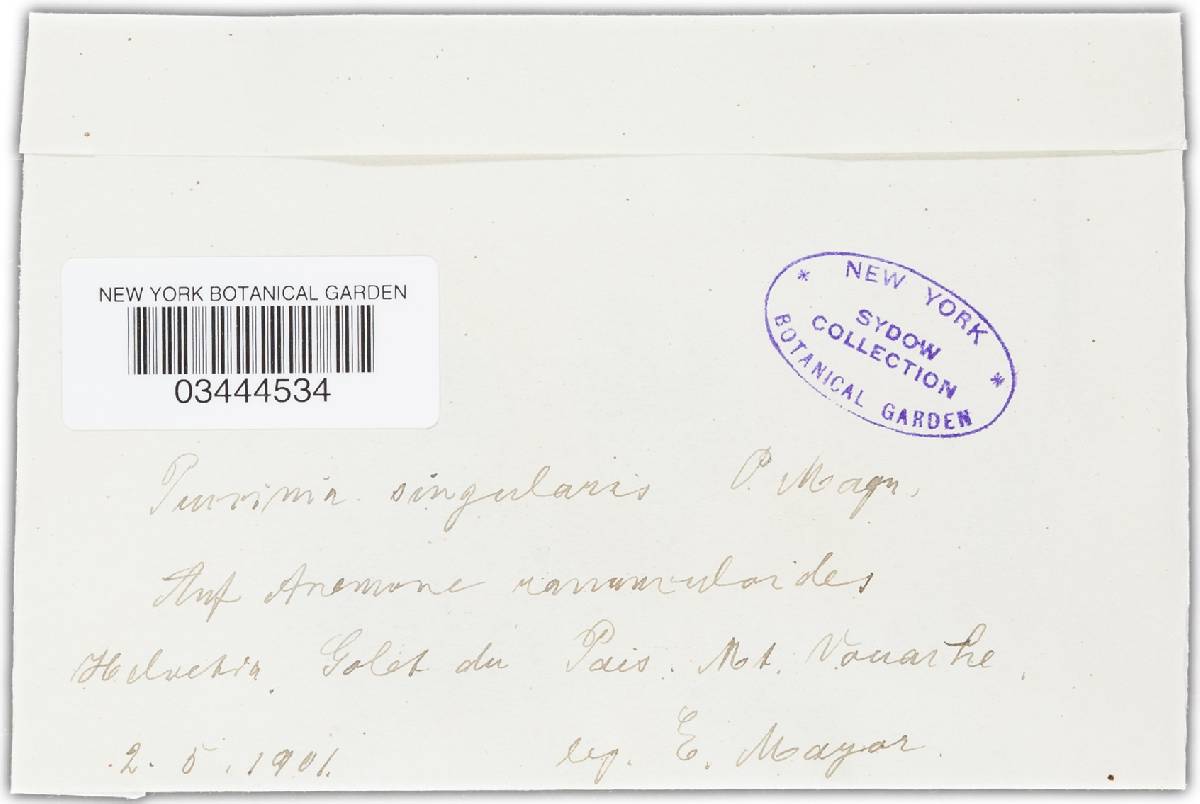 NEW YORK BOTANICAL GARDEN
03444534
* NEW YORK *
SYDOW
COLLECTION
BOTANICAL GARDEN
Puccinia singularis P. Magn.
Auf Anemone ranunculoides
Helvetia, Golet du Pais. Mt. Vouache,
2. 5. 1901. leg. E. Mayor.